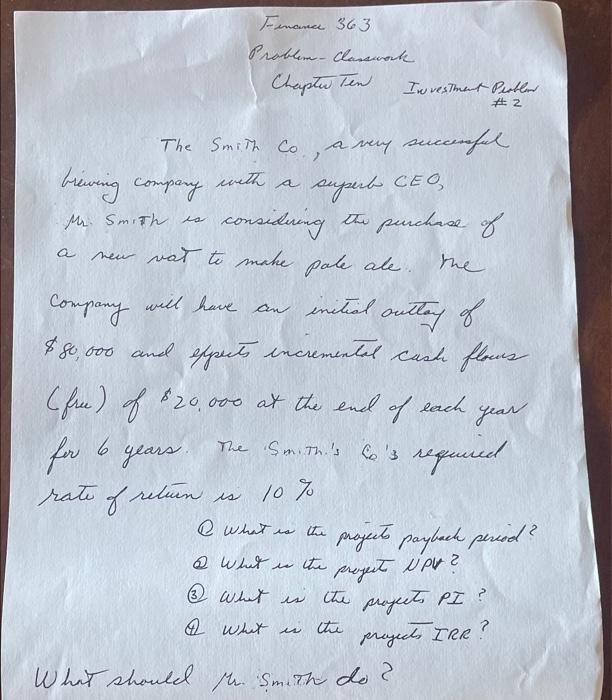 Finance 363
Problem - Classwork
Chapter Ten
Investment Problem
# 2
The Smith Co., a very successful
brewing company with a superb CEO,
Mr. Smith is considering the purchase of
a new vat to make pale ale. The
company will have an initial outlay of
$80,000 and expects incremental cash flows
(free) of $20,000 at the end of each year
for 6 years. The Smith's Co's required
rate of return is 10%
① What is the projects payback period?
② What is the projects NPV?
③ What is the projects PI?
④ What is the projects IRR?
What should Mr. Smith do?